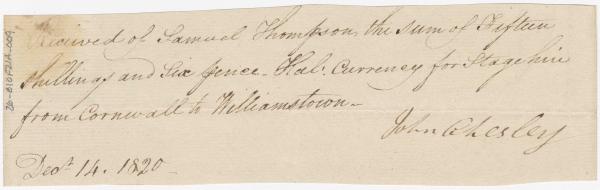 Received of Samuel Thompson, the sum of Fifteen
shillings and Six pence - Hal: Currency for Stage hire
from Cornwall to Williamstown -
John Chesley
Decr. 14. 1820 -